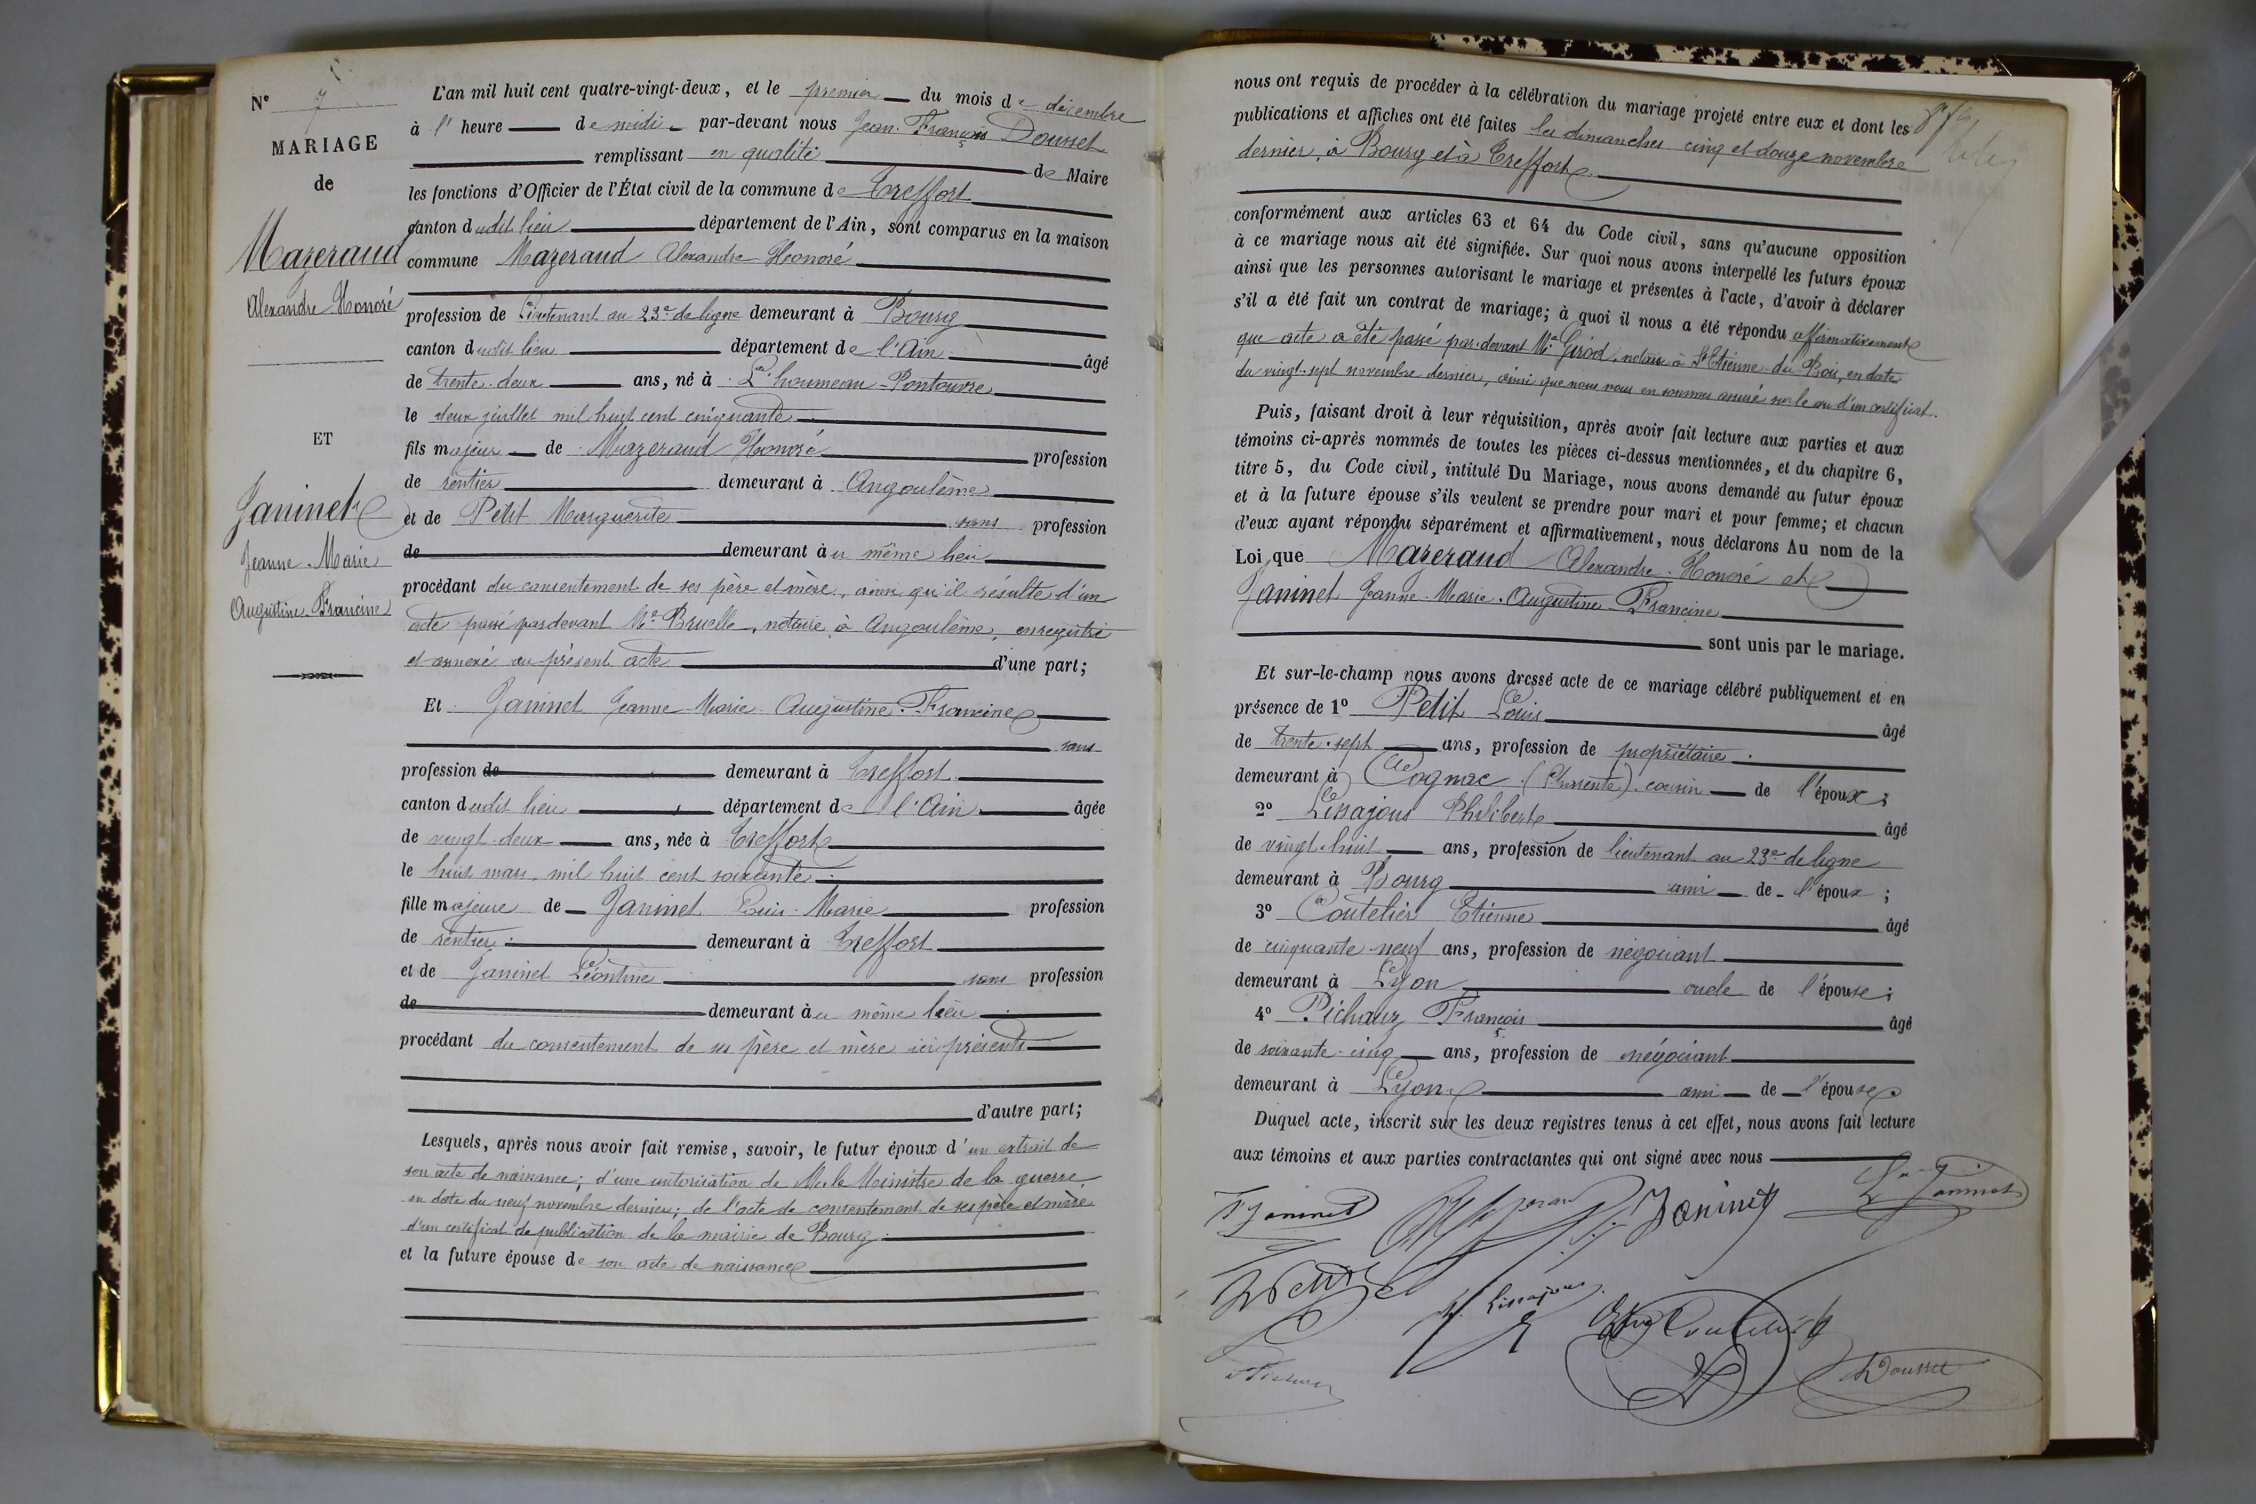 N° 7
MARIAGE
de
Mazeraud
Alexandre Honoré
ET
Janinet
Jeanne-Marie
Augustine-Francine
L'an mil huit cent quatre-vingt-deux, et le premier du mois de décembre
à l' heure de midi par-devant nous Jean-François Dousset
remplissant en qualité de Maire
les fonctions d'Officier de l'État civil de la commune de Treffort
canton dudit lieu département de l'Ain, sont comparus en la maison
commune Mazeraud Alexandre Honoré
profession de Lieutenant au 23e de ligne demeurant à Bourg
canton dudit lieu département de l'Ain âgé
de trente-deux ans, né à L'houmeau-Pontouvre
le deux juillet mil huit cent cinquante
fils majeur de Mazeraud Honoré profession
de rentier demeurant à Angoulême
et de Petit Marguerite sans profession
de demeurant au même lieu
procédant du consentement de ses père et mère, ainsi qu'il résulte d'un
acte passé pardevant Me Bruelle, notaire à Angoulême, enregistré
et annexé au présent acte d'une part;
Et Janinet Jeanne-Marie-Augustine-Francine
sans
profession de demeurant à Treffort
canton dudit lieu département de l'Ain âgée
de vingt-deux ans, née à Treffort
le huit mars mil huit cent soixante
fille majeure de Janinet Louis-Marie profession
de rentier demeurant à Treffort
et de Janinet Léontine sans profession
de demeurant au même lieu
procédant du consentement de ses père et mère ici présents
d'autre part;
Lesquels, après nous avoir fait remise, savoir, le futur époux d'un extrait de
son acte de naissance; d'une autorisation de M. le Ministre de la guerre
en date du neuf novembre dernier; de l'acte de consentement de ses père et mère
d'un certificat de publication de la mairie de Bourg
et la future épouse de son acte de naissance
nous ont requis de procéder à la célébration du mariage projeté entre eux et dont les
publications et affiches ont été faites les dimanches cinq et douze novembre
dernier, à Bourg et à Treffort
conformément aux articles 63 et 64 du Code civil, sans qu'aucune opposition
à ce mariage nous ait été signifiée. Sur quoi nous avons interpellé les futurs époux
ainsi que les personnes autorisant le mariage et présentes à l'acte, d'avoir à déclarer
s'il a été fait un contrat de mariage; à quoi il nous a été répondu affirmativement
que acte a été passé par-devant Me Girod, notaire à St Etienne-du-Bois, en date
du vingt-sept novembre dernier, ainsi que nous nous en sommes assuré sur le vu d'un certificat.
Puis, faisant droit à leur réquisition, après avoir fait lecture aux parties et aux
témoins ci-après nommés de toutes les pièces ci-dessus mentionnées, et du chapitre 6,
titre 5, du Code civil, intitulé Du Mariage, nous avons demandé au futur époux
et à la future épouse s'ils veulent se prendre pour mari et pour femme; et chacun
d'eux ayant répondu séparément et affirmativement, nous déclarons Au nom de la
Loi que Mazeraud Alexandre-Honoré et
Janinet Jeanne-Marie-Augustine-Francine
sont unis par le mariage.
Et sur-le-champ nous avons dressé acte de ce mariage célébré publiquement et en
présence de 1° Petit Louis âgé
de trente-sept ans, profession de propriétaire
demeurant à Cognac (Charente) cousin de l'époux;
2° Lissajous Philibert âgé
de vingt-huit ans, profession de lieutenant au 23e de ligne
demeurant à Bourg ami de l'époux;
3° Coutelier Etienne âgé
de cinquante-neuf ans, profession de négociant
demeurant à Lyon oncle de l'épouse;
4° Pichaux François âgé
de soixante-cinq ans, profession de négociant
demeurant à Lyon ami de l'épouse
Duquel acte, inscrit sur les deux registres tenus à cet effet, nous avons fait lecture
aux témoins et aux parties contractantes qui ont signé avec nous
F. Janinet Janinet Ln Janinet
Petit Ph. Lissajous Coutelier
Dousset